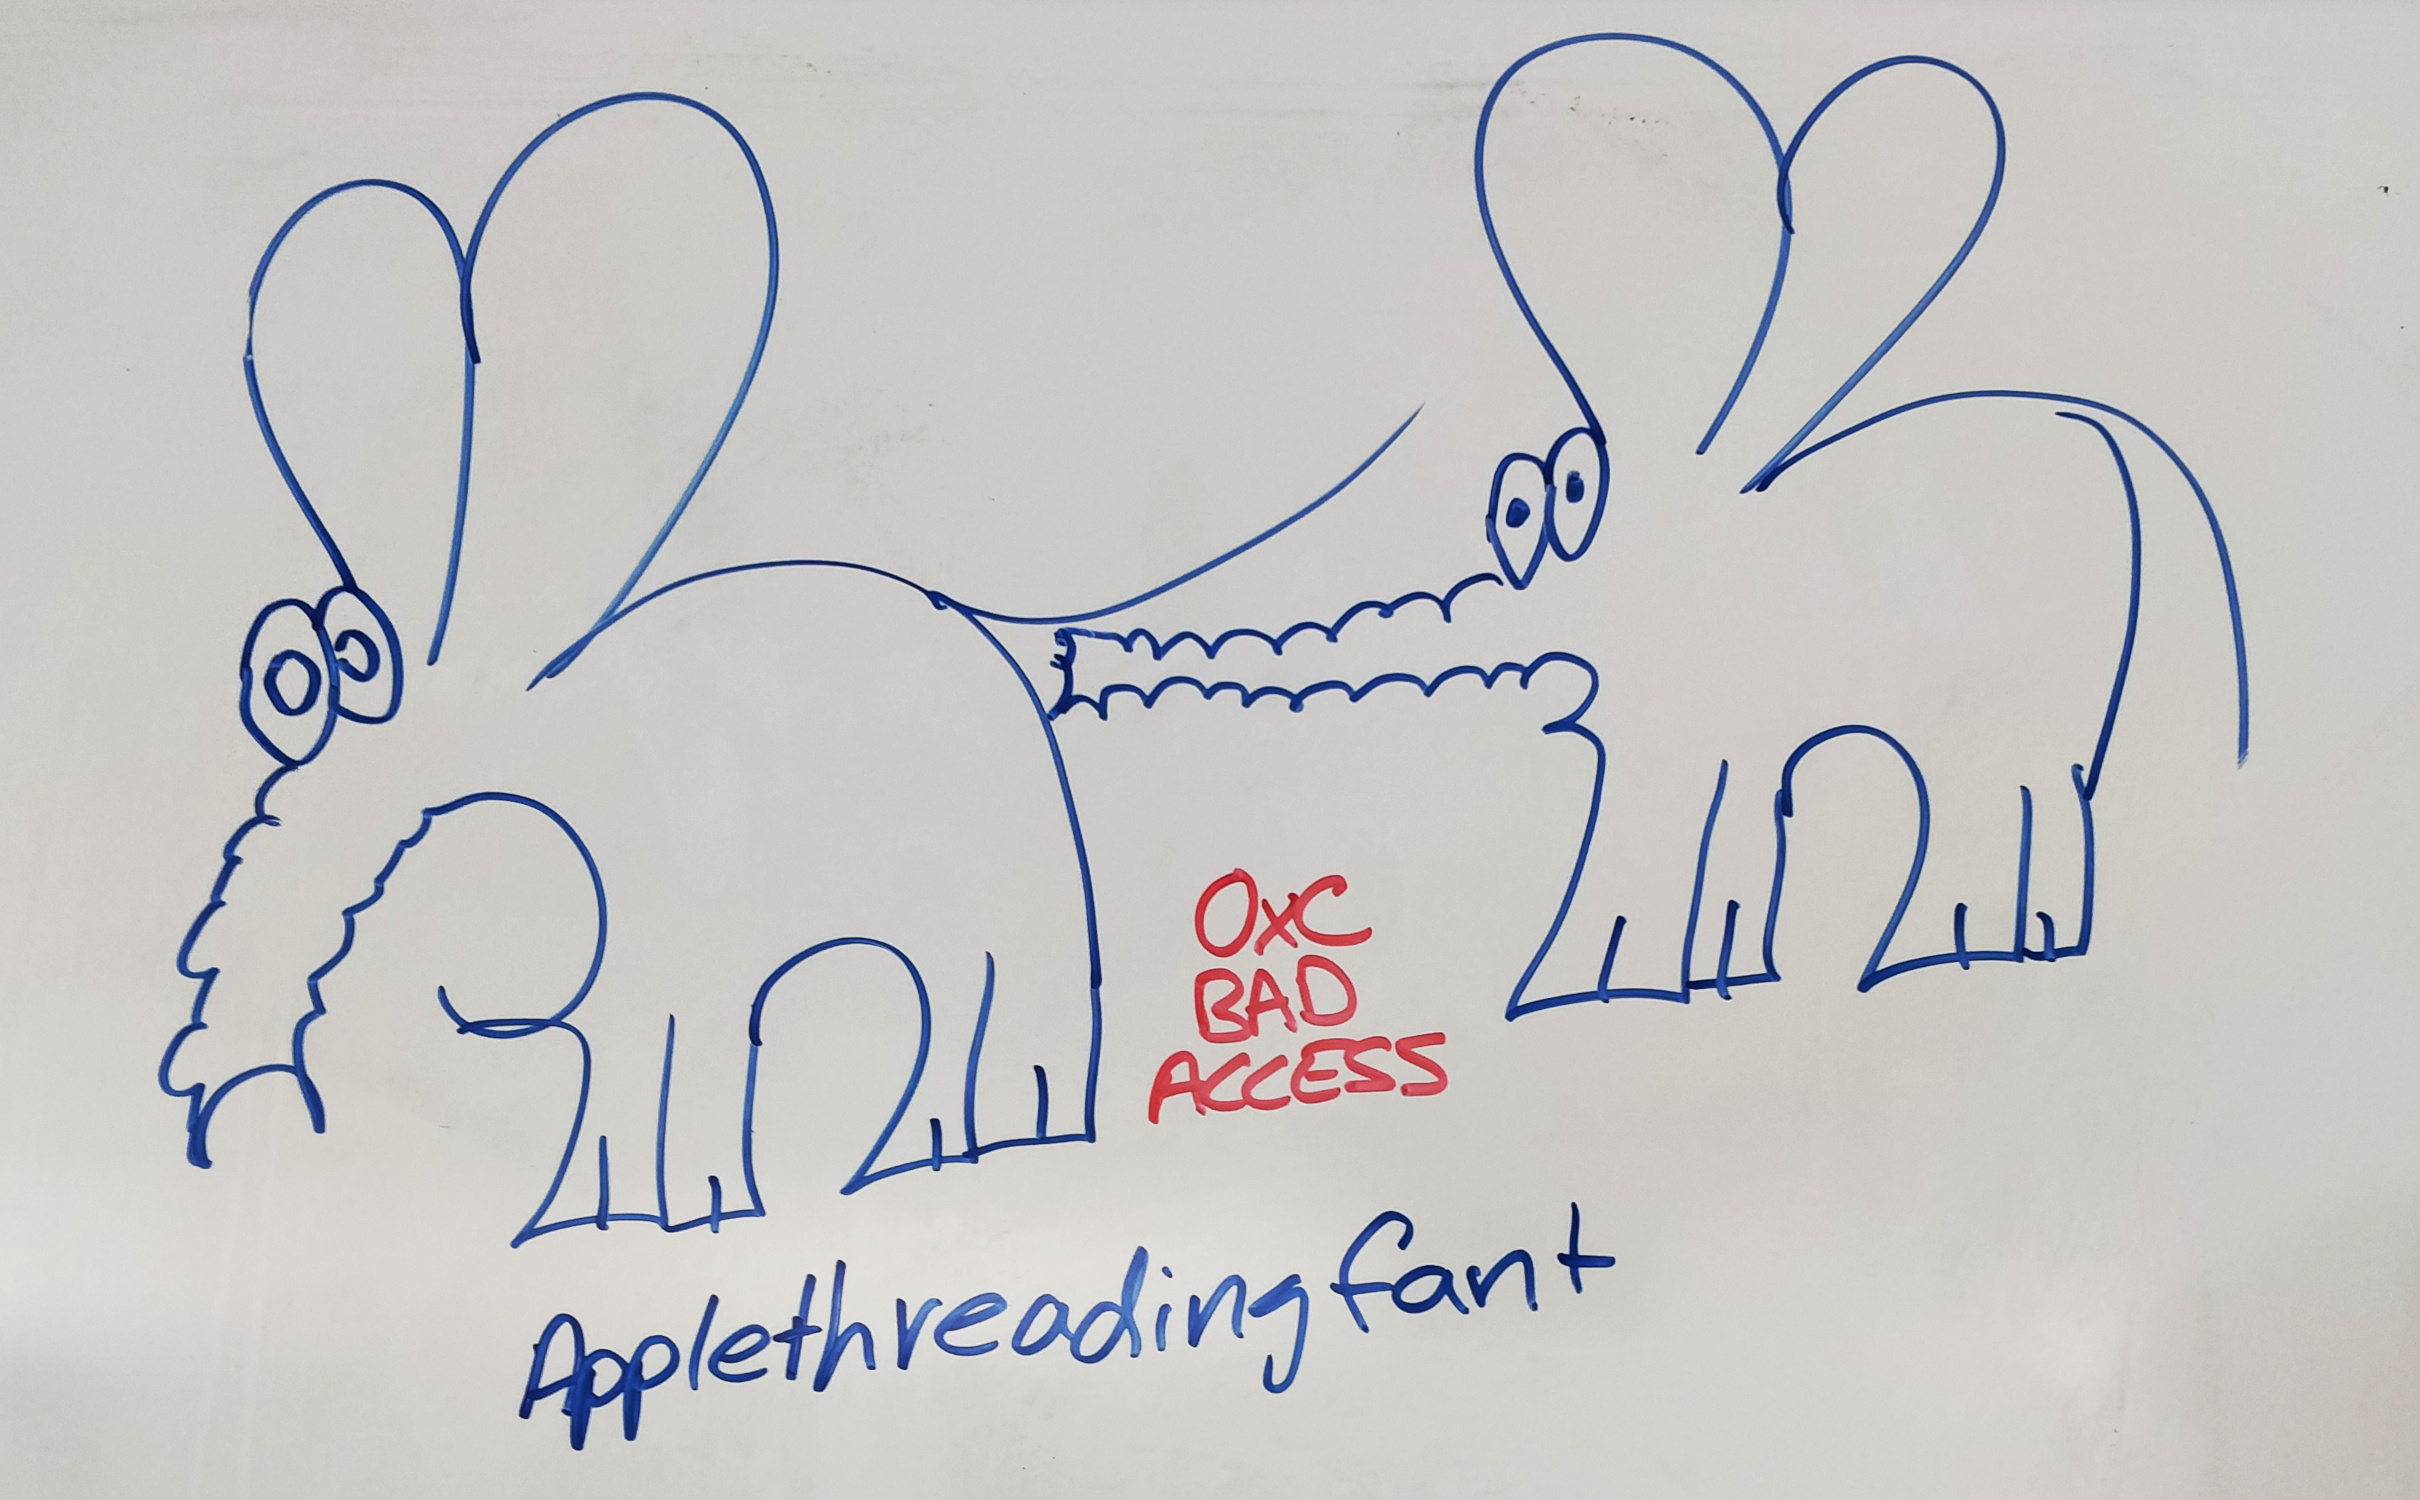 0xC
BAD
ACCESS
Applethreadingfant